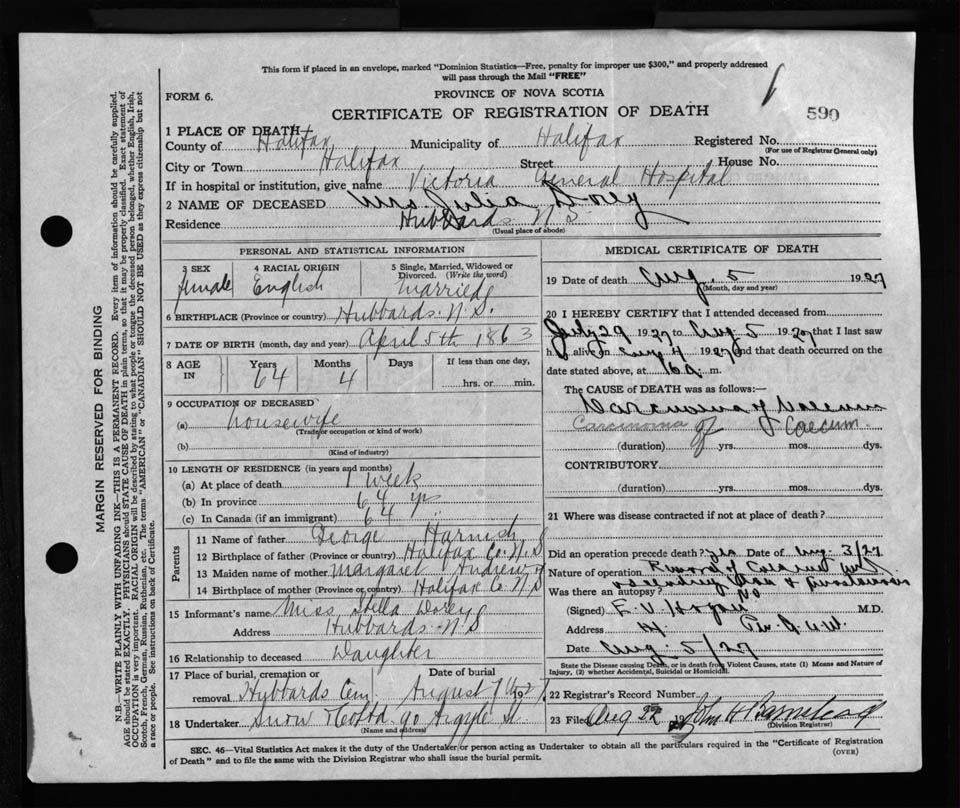 This form if placed in an envelope, marked "Dominion Statistics—Free, penalty for improper use $300," and properly addressed
will pass through the Mail "FREE"
FORM 6.
PROVINCE OF NOVA SCOTIA
CERTIFICATE OF REGISTRATION OF DEATH
590
1 PLACE OF DEATH
County of Halifax Municipality of Halifax Registered No.
(For use of Registrar General only)
City or Town Halifax Street House No.
If in hospital or institution, give name Victoria General Hospital
2 NAME OF DECEASED Mrs Julia Dorey
Residence Hubbards N.S.
(Usual place of abode)
PERSONAL AND STATISTICAL INFORMATION
3 SEX 4 RACIAL ORIGIN 5 Single, Married, Widowed or
Divorced. (Write the word)
female English married
6 BIRTHPLACE (Province or country) Hubbards. N.S.
7 DATE OF BIRTH (month, day and year) April 5th 1863
8 AGE IN Years Months If less than one day,
64 4 hrs. or min.
9 OCCUPATION OF DECEASED
(a) housewife
(Trade or occupation or kind of work)
(b)
(Kind of industry)
10 LENGTH OF RESIDENCE (in years and months)
(a) At place of death 1 week
(b) In province 64 yrs
(c) In Canada (if an immigrant) 64 "
Parents
11 Name of father George Harnish
12 Birthplace of father (Province or country) Halifax Co. N.S
13 Maiden name of mother Margaret Andrews
14 Birthplace of mother (Province or country) Halifax Co. N.S
15 Informant's name Miss Stella Dorey
Address Hubbards N.S
16 Relationship to deceased Daughter
17 Place of burial, cremation or Date of burial
removal Hubbards Cem. August 7th 1927
18 Undertaker Snow & Co Ltd. 90 Argyle St.
(Name and address)
MEDICAL CERTIFICATE OF DEATH
19 Date of death Aug. 5 1927
(Month, day and year)
20 I HEREBY CERTIFY that I attended deceased from
July 29 1927 to Aug 5 1927 that I last saw
h alive on Aug 4 1927 and that death occurred on the
date stated above, at m.
The CAUSE OF DEATH was as follows:—
Carcinoma of Caecum
Carcinoma of Caecum
(duration) yrs. mos. dys.
CONTRIBUTORY
(duration) yrs. mos. dys.
21 Where was disease contracted if not at place of death?
Did an operation precede death? yes Date of Aug. 3/27
Nature of operation Removal of Caecum
Was there an autopsy? No
(Signed) E. V. Hogan M.D.
Address
Date Aug. 5/27
State the Disease causing Death, or in death from Violent Causes, state (1) Means and Nature of
Injury, (2) whether Accidental, Suicidal or Homicidal.
22 Registrar's Record Number
23 Filed Aug 22 19 John H Barnstead
(Division Registrar)
SEC. 46—Vital Statistics Act makes it the duty of the Undertaker or person acting as Undertaker to obtain all the particulars required in the "Certificate of Registration
of Death" and to file the same with the Division Registrar who shall issue the burial permit.
(OVER)
MARGIN RESERVED FOR BINDING
N.B.—WRITE PLAINLY WITH UNFADING INK—THIS IS A PERMANENT RECORD. Every item of information should be carefully supplied.
AGE should be stated EXACTLY. PHYSICIANS should STATE CAUSE OF DEATH in plain terms, so that it may be properly classified. Exact statement of
OCCUPATION is very important. RACIAL ORIGIN will be described by stating to what people or tongue the deceased person belonged, whether English, Irish,
Scotch, French, German, Russian, Ruthenian, etc. The terms "AMERICAN" or "CANADIAN" SHOULD NOT BE USED as they express citizenship but not
a race or people. See instructions on back of Certificate.